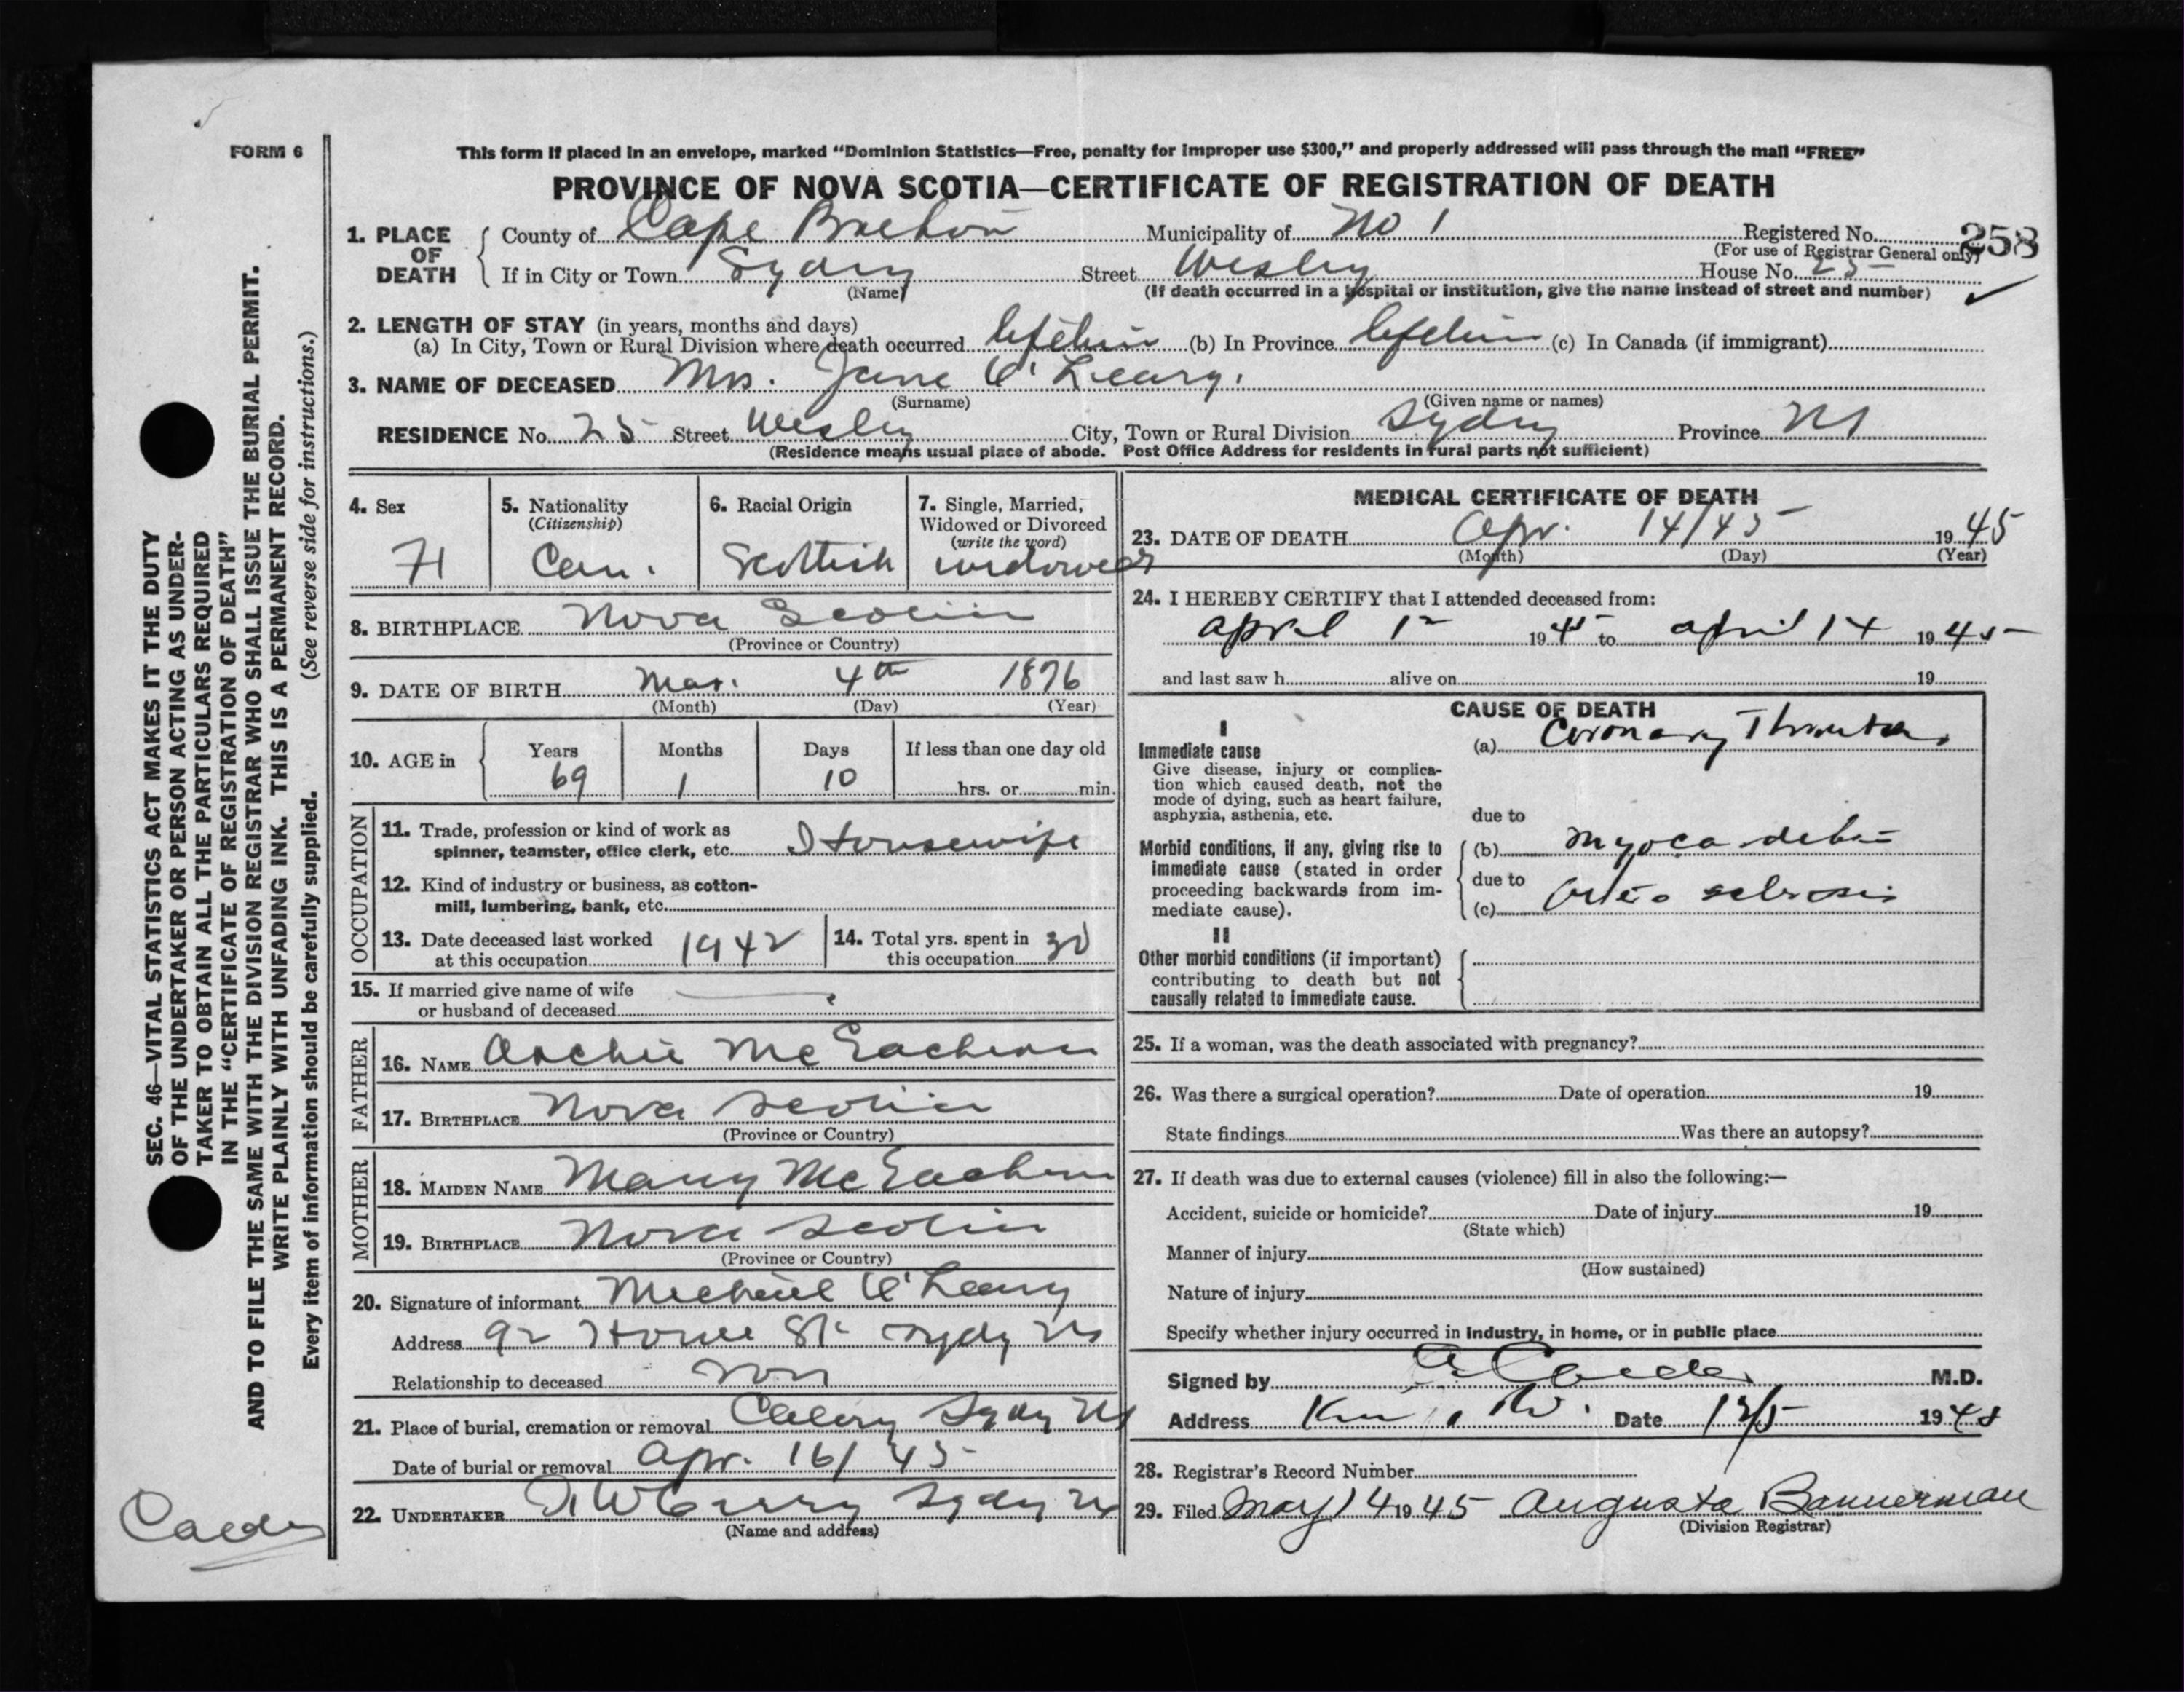 FORM 6
This form if placed in an envelope, marked "Dominion Statistics—Free, penalty for improper use $300," and properly addressed will pass through the mail "FREE"
PROVINCE OF NOVA SCOTIA—CERTIFICATE OF REGISTRATION OF DEATH
1. PLACE OF DEATH County of Cape Breton Municipality of No 1 Registered No. 258
(For use of Registrar General only)
If in City or Town Sydney Street Wesley House No. 25
(Name) (If death occurred in a hospital or institution, give the name instead of street and number)
2. LENGTH OF STAY (in years, months and days)
(a) In City, Town or Rural Division where death occurred lifetime (b) In Province lifetime (c) In Canada (if immigrant)
3. NAME OF DECEASED Mrs. Jane O'Leary.
(Surname) (Given name or names)
RESIDENCE No. 25 Street Wesley City, Town or Rural Division Sydney Province NS
(Residence means usual place of abode. Post Office Address for residents in rural parts not sufficient)
4. Sex F
5. Nationality (Citizenship) Can.
6. Racial Origin Scottish
7. Single, Married, Widowed or Divorced (write the word) widowed
8. BIRTHPLACE Nova Scotia
(Province or Country)
9. DATE OF BIRTH Mar. 4th 1876
(Month) (Day) (Year)
10. AGE in Years 69 Months 1 Days 10 If less than one day old hrs. or min.
OCCUPATION
11. Trade, profession or kind of work as
spinner, teamster, office clerk, etc. Housewife
12. Kind of industry or business, as cotton-
mill, lumbering, bank, etc.
13. Date deceased last worked at this occupation 1942
14. Total yrs. spent in this occupation 30
15. If married give name of wife
or husband of deceased
FATHER
16. NAME Archie McEachern
17. BIRTHPLACE Nova Scotia
(Province or Country)
MOTHER
18. MAIDEN NAME Mary McEachern
19. BIRTHPLACE Nova Scotia
(Province or Country)
20. Signature of informant Michael O'Leary
Address 92 St Sydney NS
Relationship to deceased son
21. Place of burial, cremation or removal Sydney NS
Date of burial or removal Apr. 16/45
22. UNDERTAKER Curry Sydney NS
(Name and address)
MEDICAL CERTIFICATE OF DEATH
23. DATE OF DEATH Apr. 14/45 1945
(Month) (Day) (Year)
24. I HEREBY CERTIFY that I attended deceased from:
April 1945 to April 14 1945
and last saw h alive on 19
CAUSE OF DEATH
I
Immediate cause (a) Coronary
Give disease, injury or complica-
tion which caused death, not the
mode of dying, such as heart failure,
asphyxia, asthenia, etc.
due to
Morbid conditions, if any, giving rise to
immediate cause (stated in order
proceeding backwards from im-
mediate cause).
(b)
due to
(c) sclerosis
II
Other morbid conditions (if important)
contributing to death but not
causally related to immediate cause.
25. If a woman, was the death associated with pregnancy?
26. Was there a surgical operation? Date of operation 19
State findings Was there an autopsy?
27. If death was due to external causes (violence) fill in also the following:—
Accident, suicide or homicide? Date of injury 19
(State which)
Manner of injury
(How sustained)
Nature of injury
Specify whether injury occurred in industry, in home, or in public place
Signed by M.D.
Address Date 1945
28. Registrar's Record Number
29. Filed May 14 1945 Augusta Bannerman
(Division Registrar)
SEC. 46—VITAL STATISTICS ACT MAKES IT THE DUTY
OF THE UNDERTAKER OR PERSON ACTING AS UNDER-
TAKER TO OBTAIN ALL THE PARTICULARS REQUIRED
IN THE "CERTIFICATE OF REGISTRATION OF DEATH"
AND TO FILE THE SAME WITH THE DIVISION REGISTRAR WHO SHALL ISSUE THE BURIAL PERMIT.
WRITE PLAINLY WITH UNFADING INK. THIS IS A PERMANENT RECORD.
Every item of information should be carefully supplied. (See reverse side for instructions.)